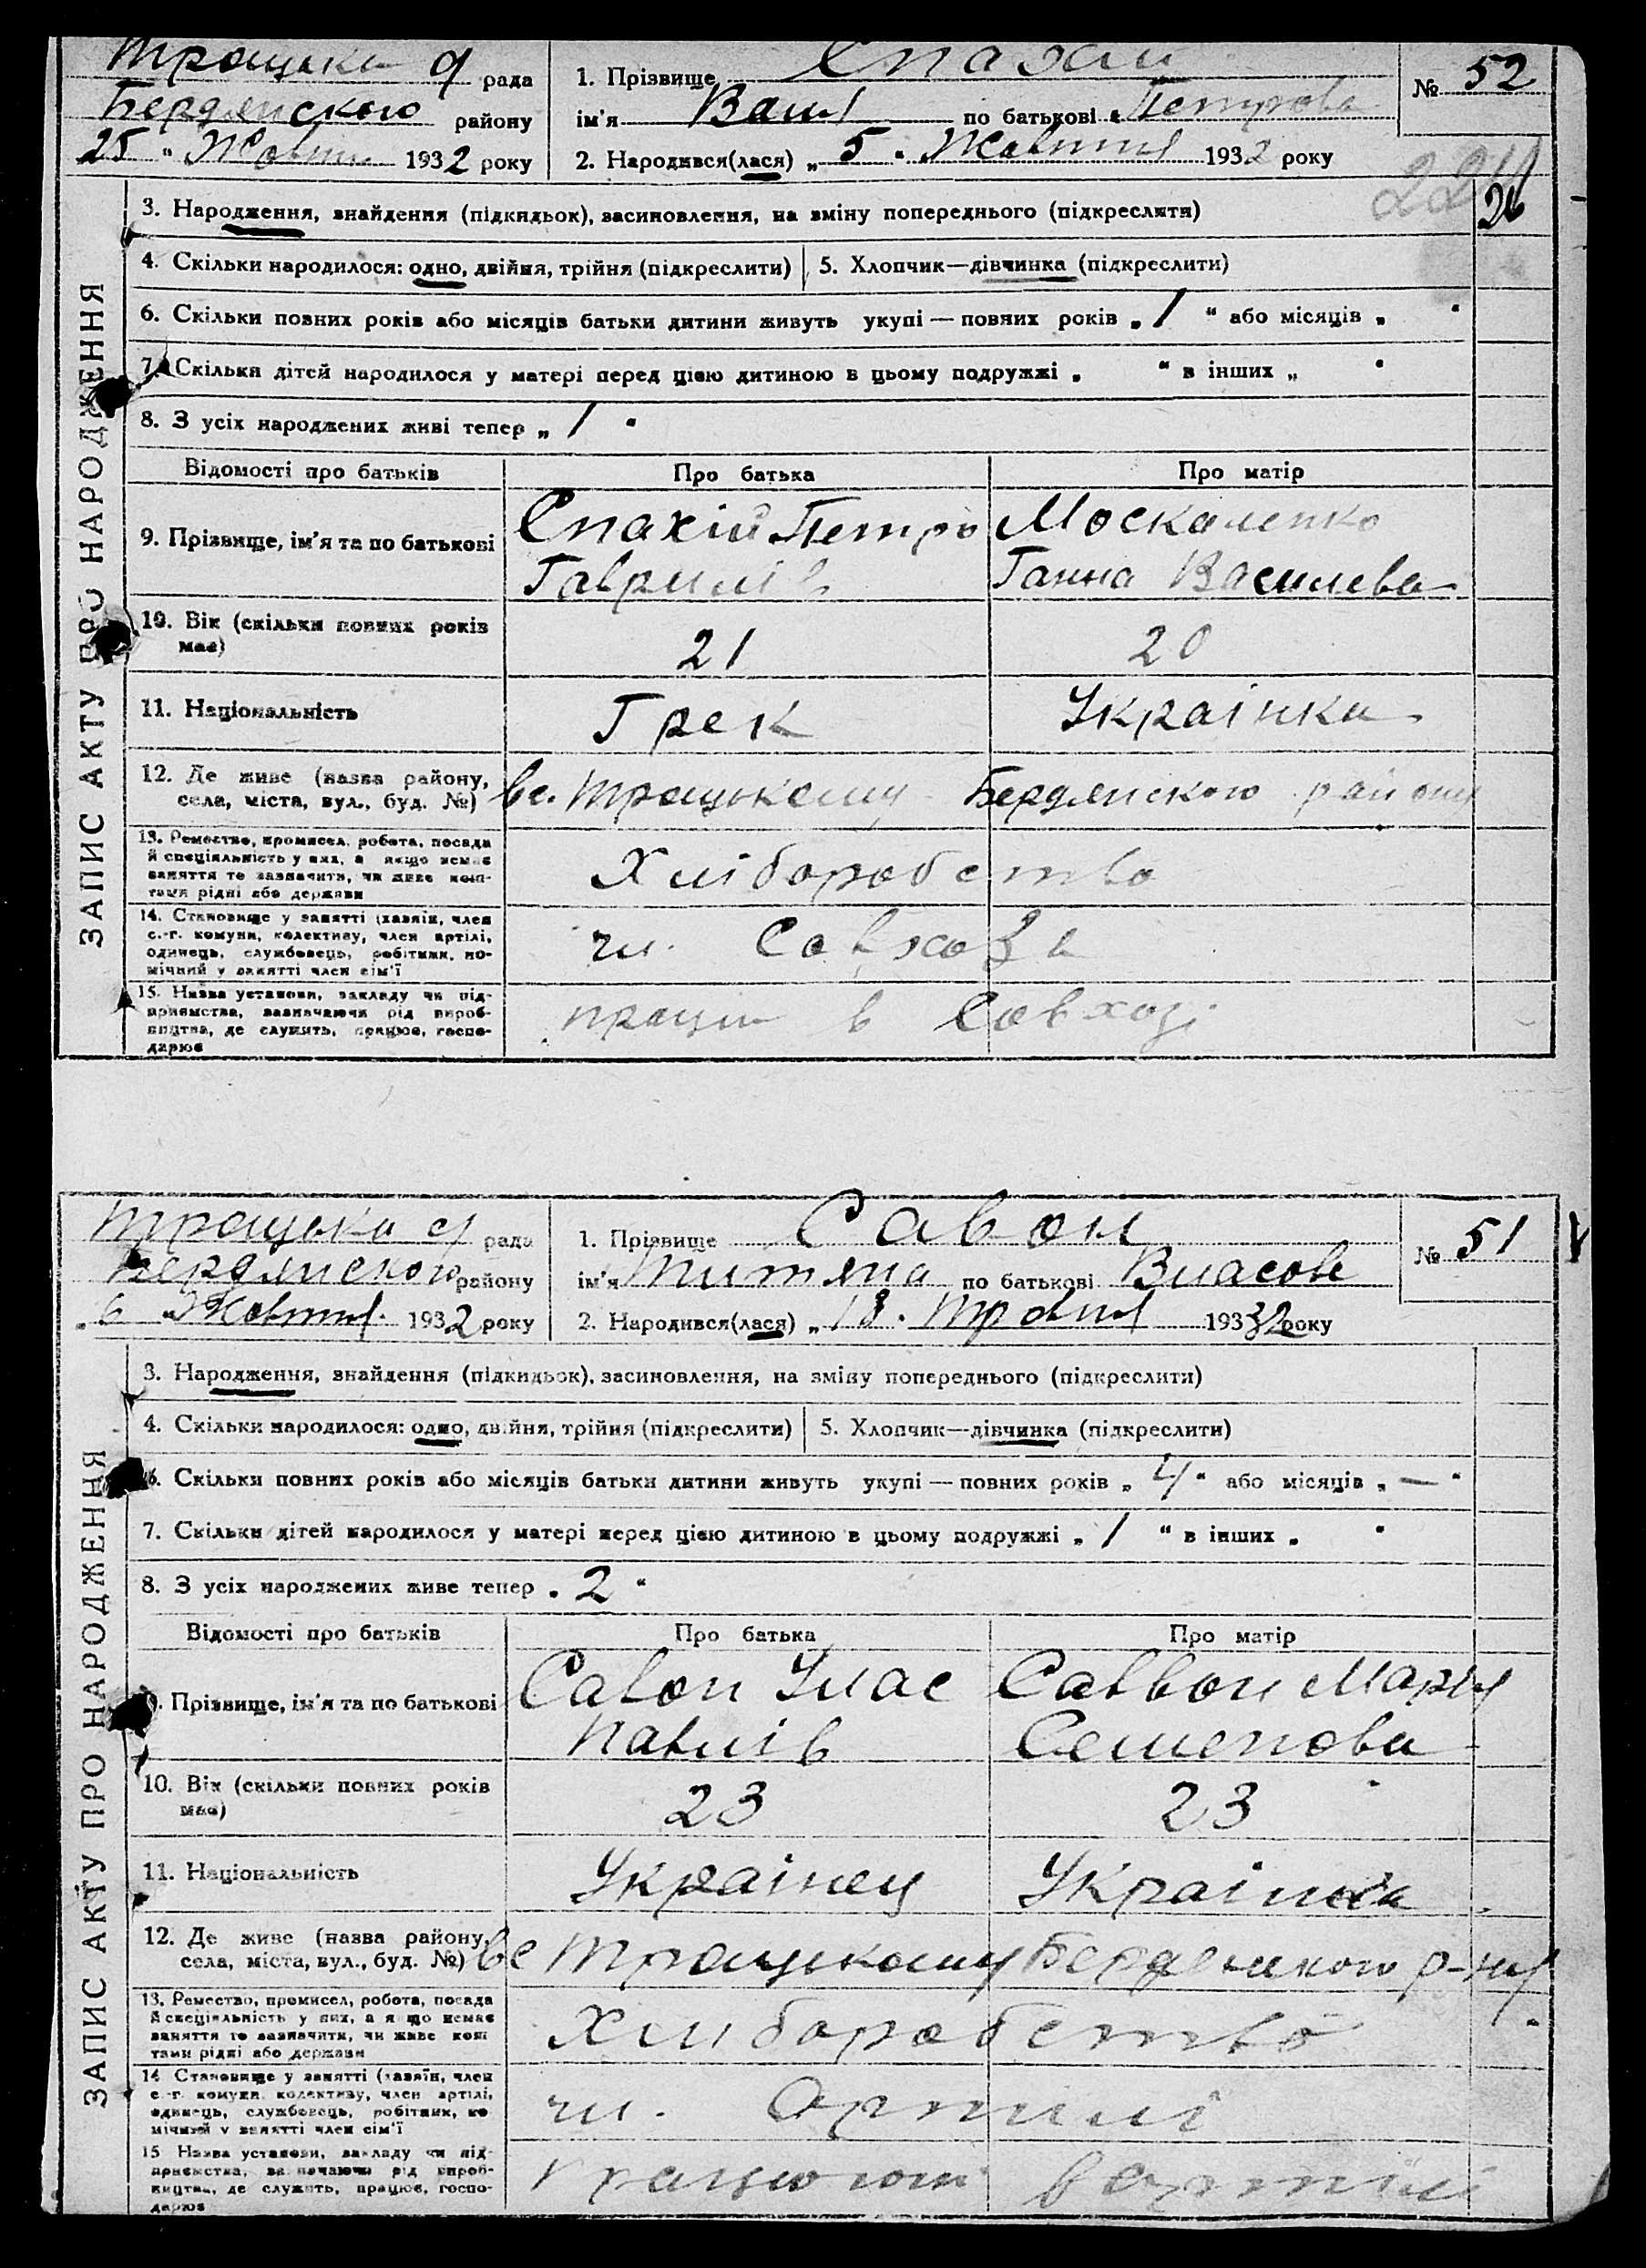 Троцька с/ рада
Бердянского району
25 " Жовтня 1932 року
1. Прізвище Спахий
ім'я по батькові Петрова
2. Народився(лася) „ 5 " Жовтня 1932 року
№ 52
3. Народження, знайдення (підкидьок), засиновлення, на зміну попереднього (підкреслити)
26
4. Скільки народилося: одно, двійня, трійня (підкреслити)
5. Хлопчик—дівчинка (підкреслити)
6. Скільки повних років або місяців батьки дитини живуть укупі — повних років „ 1 " або місяців „ "
7. Скільки дітей народилося у матері перед цією дитиною в цьому подружжі „ " в інших „ "
8. З усіх народжених живі тепер „ 1 "
Відомості про батьків Про батька Про матір
9. Прізвище, ім'я та по батькові
Спахій Петро Москаленко
Гаврилів Ганна Василева
10. Вік (скільки повних років має)
21 20
11. Національність Грек Українка
12. Де живе (назва району, села, міста, вул., буд. №) в с. Троцькому Бердянского району
13. Ремество, промисел, робота, посада
й спеціяльність у них, а якщо немає
заняття то зазначити, чи живе кош-
тами рідні або держави
Хліборобство
14. Становище у занятті (хазяїн, член
с.-г. комуни, колективу, член артілі,
одинець, службовець, робітник, по-
мічний у занятті член сім'ї
чл. Совхоза
15. Назва установи, закладу чи під-
приємства, зазначаючи рід вироб-
ництва, де служить, працює, госпо-
дарює
в Совхозі
ЗАПИС АКТУ ПРО НАРОДЖЕННЯ
Троцька с/ рада
Бердянского району
6 " Жовтня 1932 року
1. Прізвище Савон
ім'я Титяна по батькові Власове
2. Народився(лася) „ 18 . Травня 1932 року
№ 51
3. Народження, знайдення (підкидьок), засиновлення, на зміну попереднього (підкреслити)
4. Скільки народилося: одно, двійня, трійня (підкреслити)
5. Хлопчик—дівчинка (підкреслити)
6. Скільки повних років або місяців батьки дитини живуть укупі — повних років „ 4 " або місяців „ — "
7. Скільки дітей народилося у матері перед цією дитиною в цьому подружжі „ 1 " в інших „ "
8. З усіх народжених живе тепер „ 2 "
Відомості про батьків Про батька Про матір
9. Прізвище, ім'я та по батькові
Савон Улас Саввон Марія
Павлів Семенова
10. Вік (скільки повних років має)
23 23
11. Національність Українец Українка
12. Де живе (назва району, села, міста, вул., буд. №) в с Троцькому Бердянского р-ну
13. Ремество, промисел, робота, посада
й спеціяльність у них, а якщо немає
заняття то зазначити, чи живе кош-
тами рідні або держави
Хліборобство
14. Становище у занятті (хазяїн, член
с.-г. комуни, колективу, член артілі,
одинець, службовець, робітник, по-
мічний у занятті член сім'ї
чл. Артилі
15. Назва установи, закладу чи під-
приємства, зазначаючи рід вироб-
ництва, де служить, працює, госпо-
дарює
працюют в артилі
ЗАПИС АКТУ ПРО НАРОДЖЕННЯ